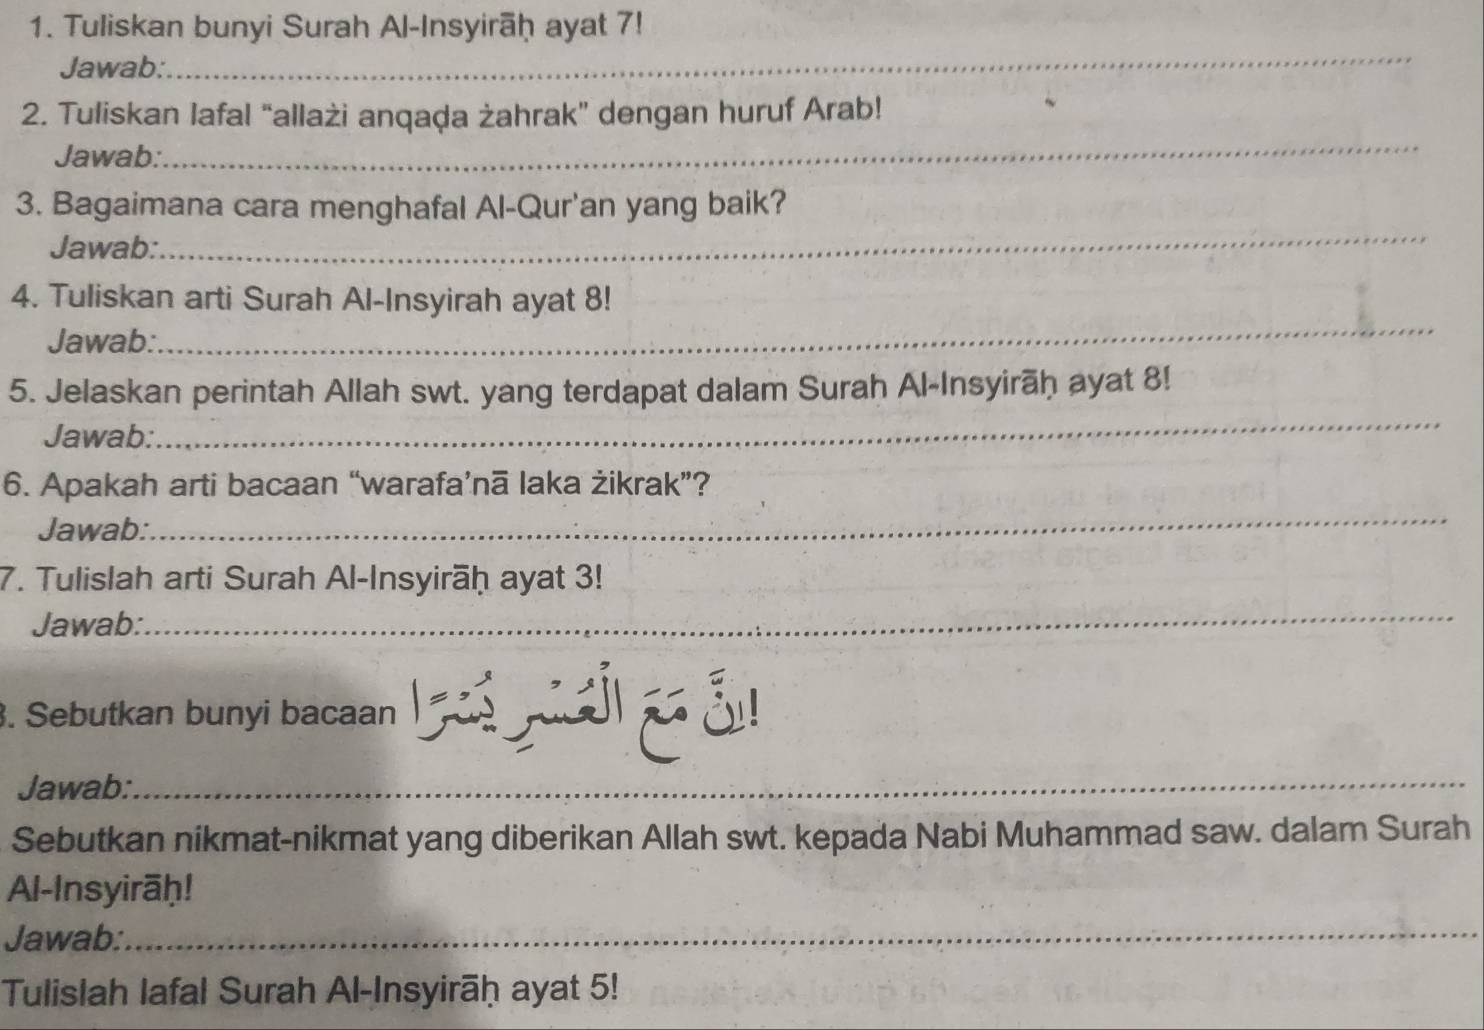 1. Tuliskan bunyi Surah Al-Insyirāḥ ayat 7!
Jawab:
2. Tuliskan lafal “allażi anqaḍa żahrak” dengan huruf Arab!
Jawab:
3. Bagaimana cara menghafal Al-Qur'an yang baik?
Jawab:
4. Tuliskan arti Surah Al-Insyirah ayat 8!
Jawab:
5. Jelaskan perintah Allah swt. yang terdapat dalam Surah Al-Insyirāḥ ayat 8!
Jawab:
6. Apakah arti bacaan “warafa’nā laka żikrak”?
Jawab:
7. Tulislah arti Surah Al-Insyirāḥ ayat 3!
Jawab:
8. Sebutkan bunyi bacaan إِنَّ مَعَ الْعُسْرِ يُسْرًا!
Jawab:
Sebutkan nikmat-nikmat yang diberikan Allah swt. kepada Nabi Muhammad saw. dalam Surah
Al-Insyirāḥ!
Jawab:
Tulislah lafal Surah Al-Insyirāḥ ayat 5!